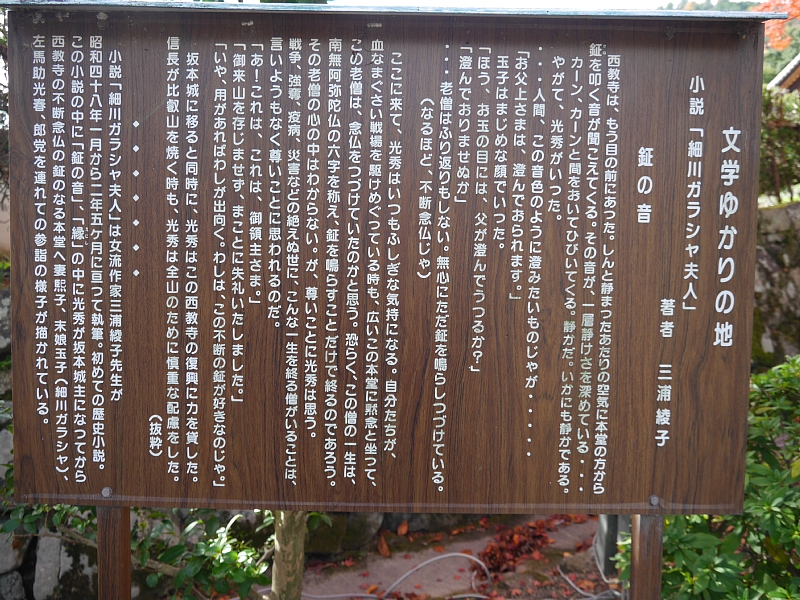 文学ゆかりの地
小説「細川ガラシヤ夫人」
著者　三浦綾子
鉦の音
西教寺は、もう目の前にあつた。しんと静まつたあたりの空気に本堂の方から
鉦を叩く音が聞こえてくる。その音が、一層静けさを深めている・・・
カーン、カーンと間をおいてひびいてくる。静かだ。いかにも静かである。
やがて、光秀がいつた。
・・・人間、この音色のように澄みたいものじゃが・・・・・
玉子はまじめな顔でいつた。
「お父上さまは、澄んでおられます。」
「ほう、お玉の目には、父が澄んでうつるか？」
「澄んでおりませぬか」
・・・老僧はふり返りもしない。無心にただ鉦を鳴らしつづけている。
（なるほど、不断念仏じゃ）
ここに来て、光秀はいつもふしぎな気持になる。自分たちが、
血なまぐさい戦場を駆けめぐつている時も、広いこの本堂に黙念と坐つて、
この老僧は、念仏をつづけていたのかと思う。恐らく、この僧の一生は、
南無阿弥陀仏の六字を称え、鉦を鳴らすことだけで終るのであろう。
その老僧の心の中はわからない。が、尊いことに光秀は思う。
戦争、強奪、疫病、災害などの絶えぬ世に、こんな一生を終る僧がいることは、
言いようもなく尊いことに思われるのだ。
「あ！これは、これは、御領主さま。」
「御来山を存じませず、まことに失礼いたしました。」
「いや、用があればわしが出向く。わしは、この不断の鉦が好きなのじゃ。」
坂本城に移ると同時に、光秀はこの西教寺の復興に力を貸した。
信長が比叡山を焼く時も、光秀は全山のために慎重な配慮をした。
（抜粋）
◆　◆　◆　◆　◆　◆　◆
小説「細川ガラシヤ夫人」は女流作家三浦綾子先生が
昭和四十八年一月から二年五ケ月に亘つて執筆。初めての歴史小説。
この小説の中に「鉦の音」、「縁」の中に光秀が坂本城主になつてから
西教寺の不断念仏の鉦のなる本堂へ妻熙子、末娘玉子（細川ガラシヤ）、
左馬助光春、郎党を連れての参詣の様子が描かれている。